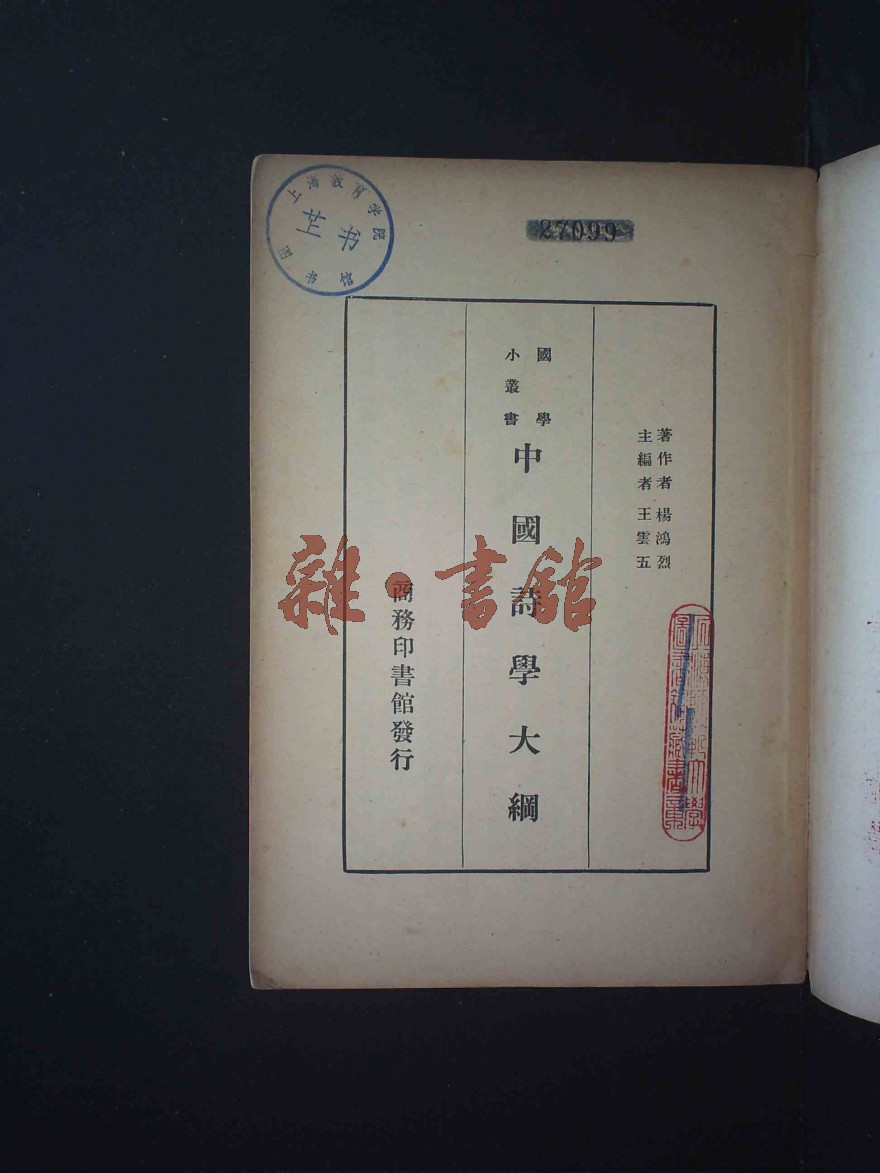 著作者 楊鴻烈
主編者 王雲五
國學
小叢書
中國詩學大綱
商務印書館發行
27099
上海教育学院
图书馆
书
雜·書館